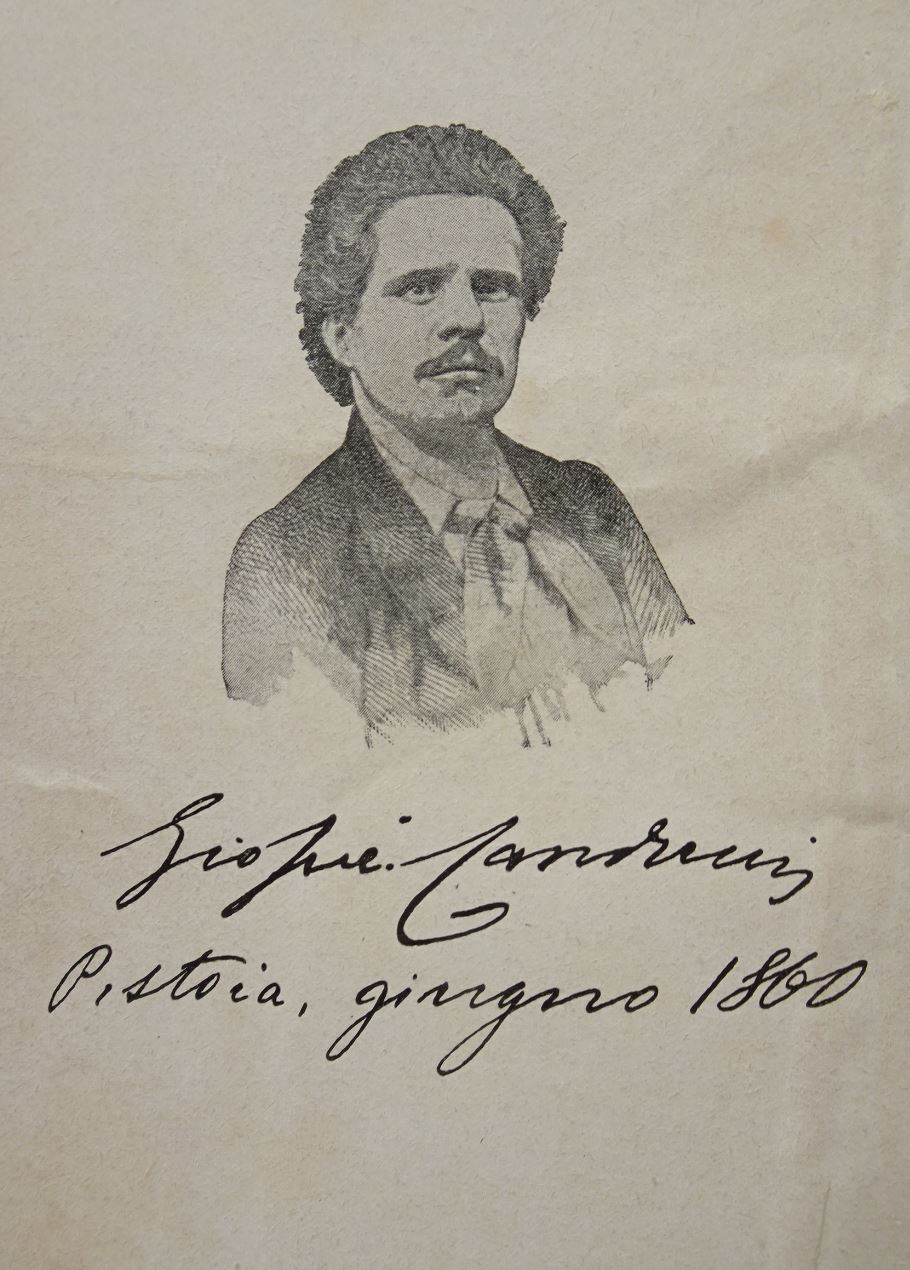 Giosuè Carducci
Pistoia, giugno 1860